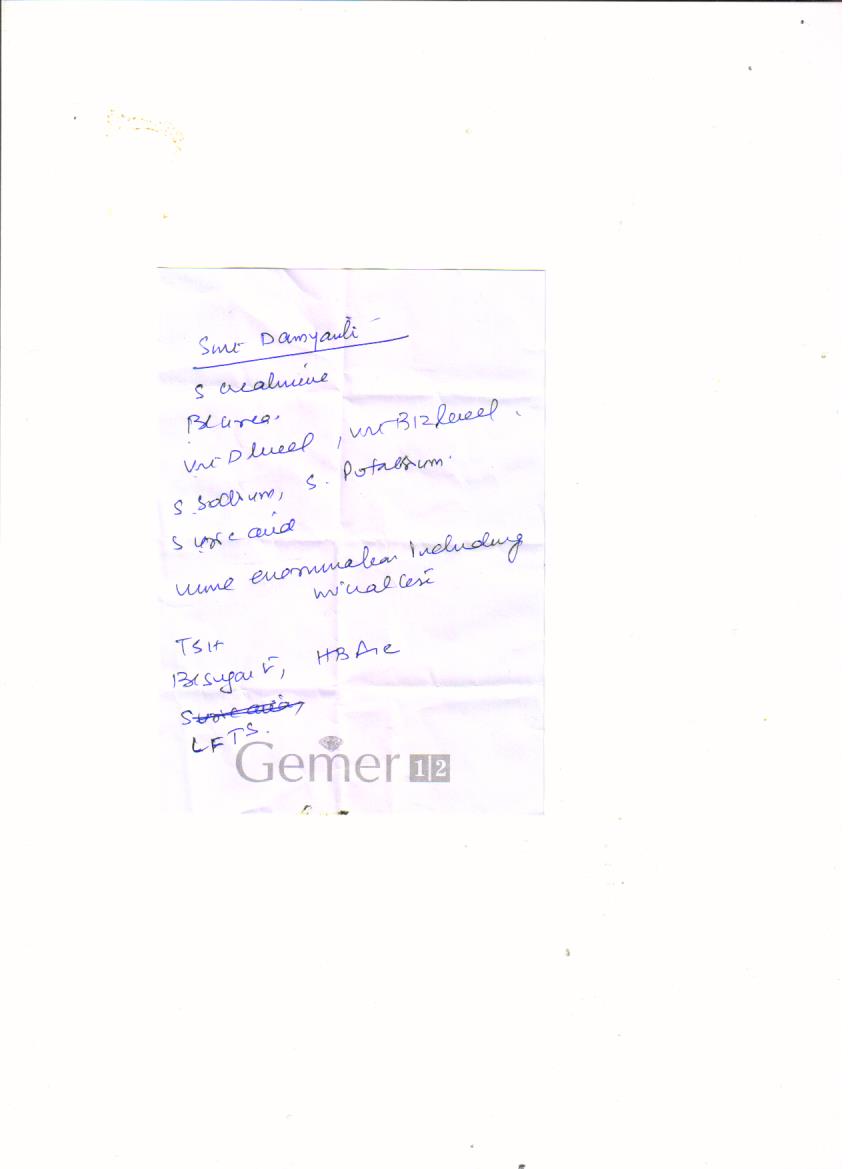 Smt Damyanti
S creatinine
Bl urea.
Vit D level, Vit B12 level.
S Sodium, S. Potassium.
S uric acid
urine examination Including
TSH
Bl sugar F, HBA1c
S uric acid,
LFTS.
Gemer 12